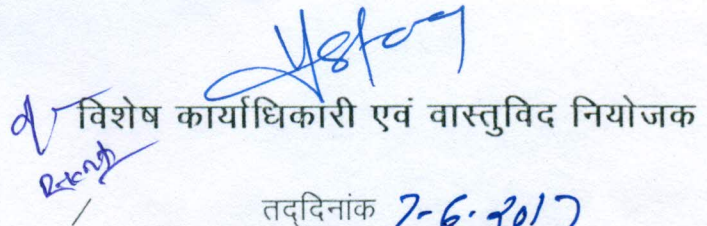 विशेष कार्याधिकारी एवं वास्तुविद नियोजक
तद्दिनांक 7-6-2017